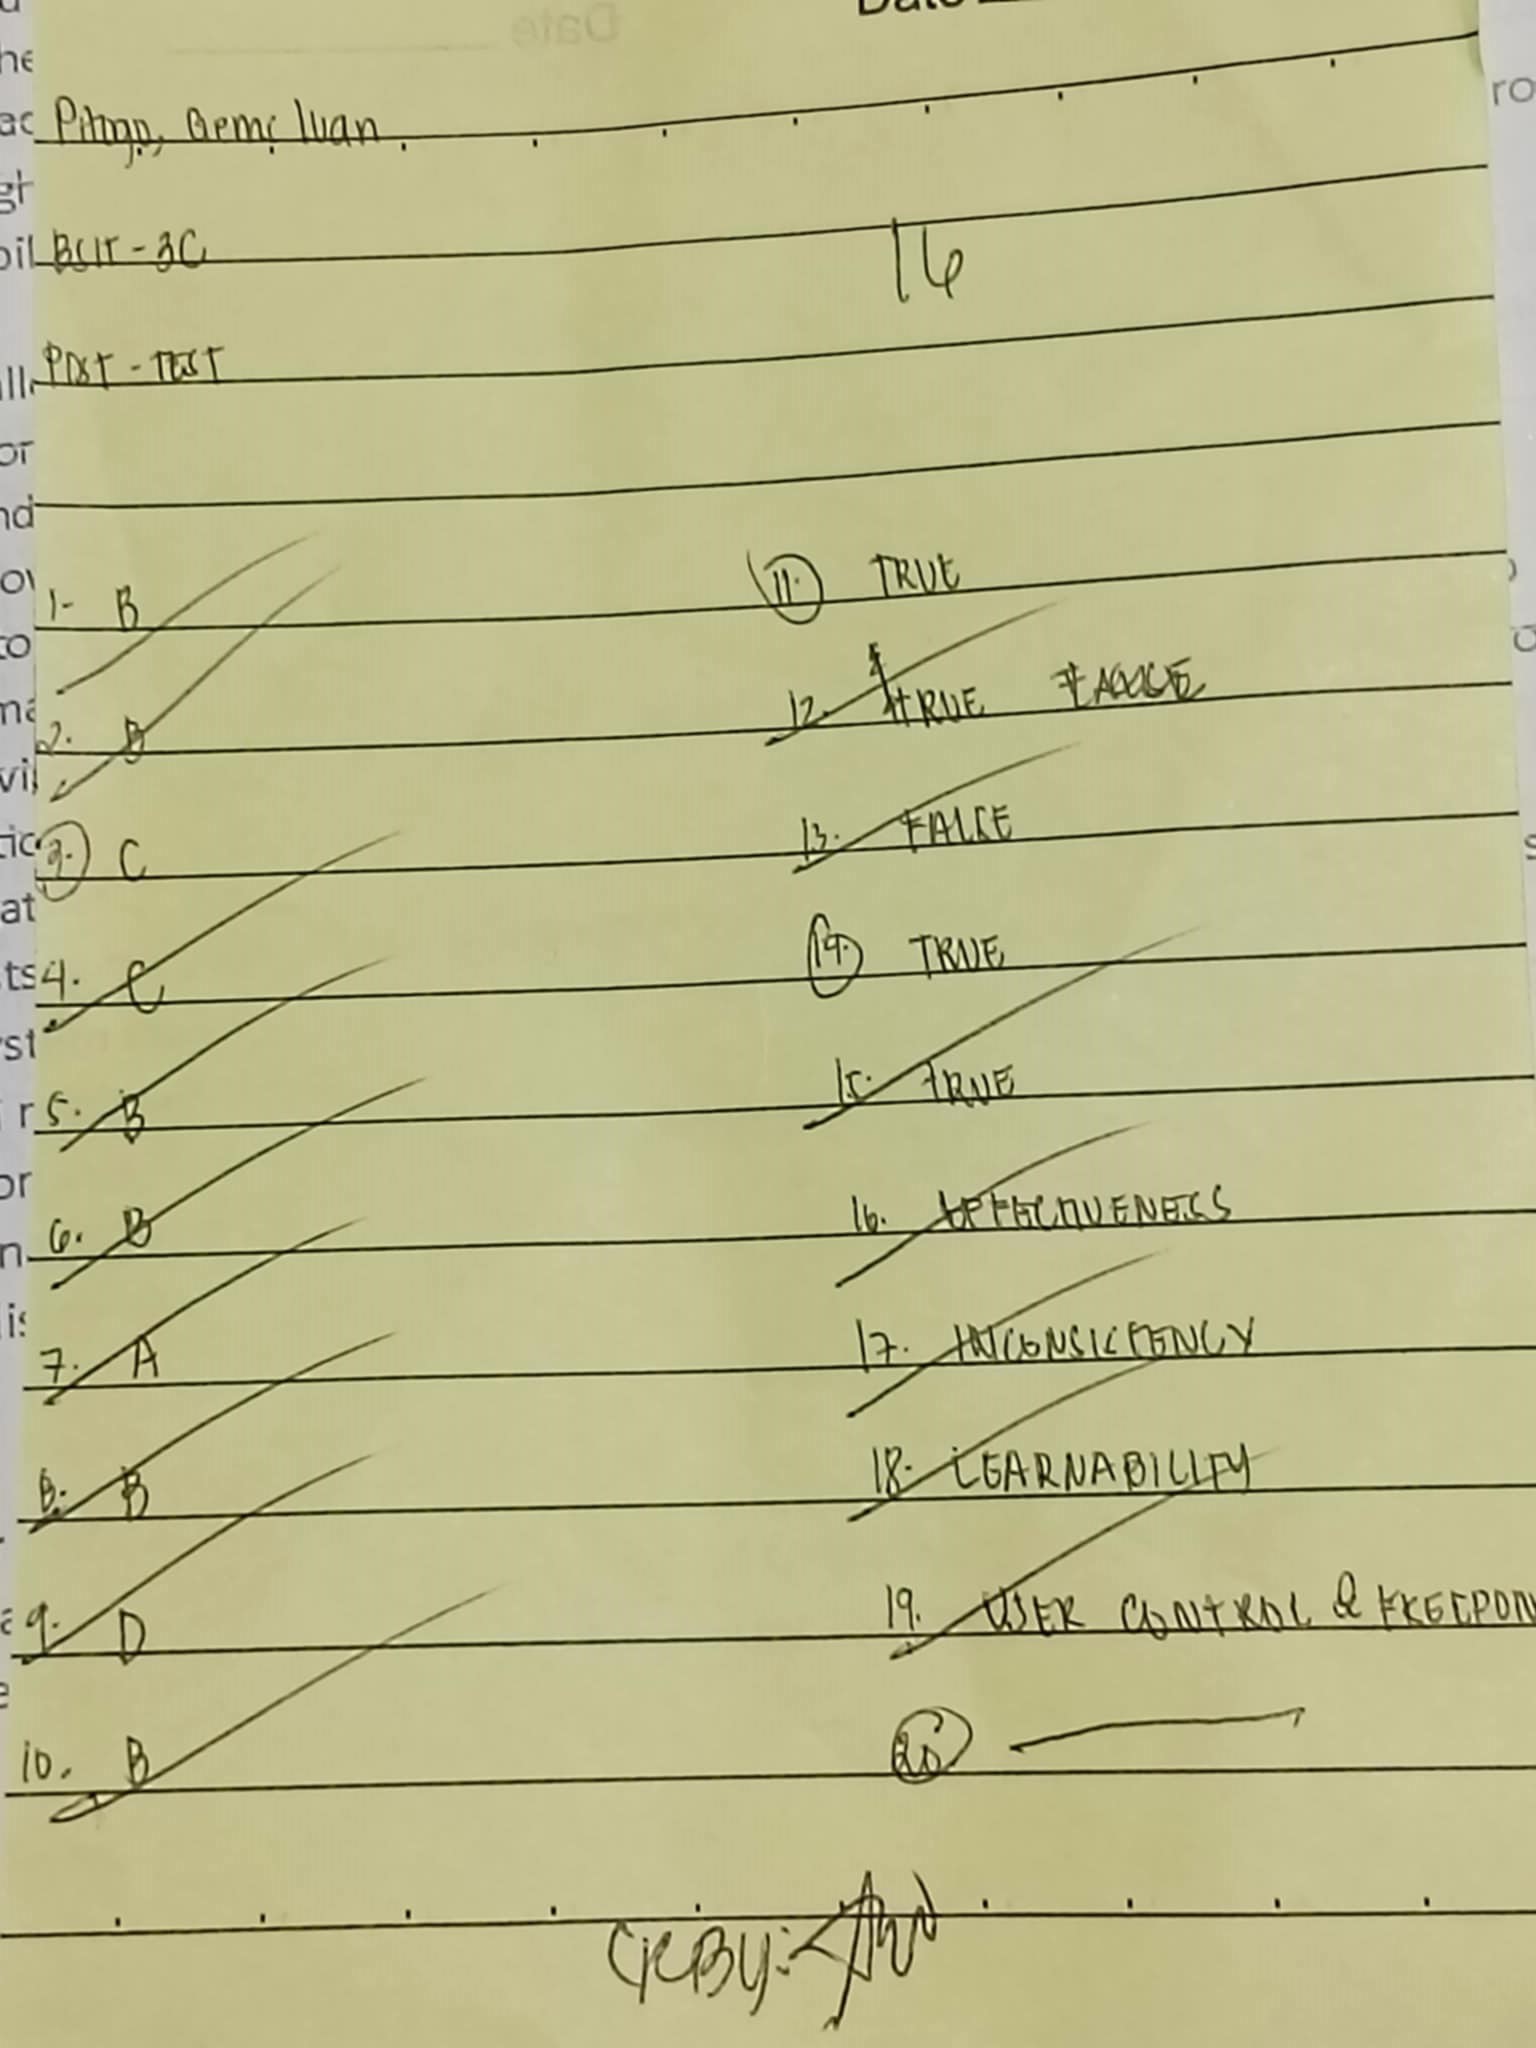 Date
Date
Pitogo, Geme Ivan
BSIT - 3C
16
POST - TEST
1- B
2. B
3. C
4. C
5. B
6. B
7. A
8. B
9. D
10. B
11. TRUE
12. TRUE
13. FALSE
14. TRUE
15. TRUE
16. EFFECTIVENESS
17. INCONSISTENCY
18. LEARNABILITY
19. USER CONTROL & FREEDOM
20.
CK BY: